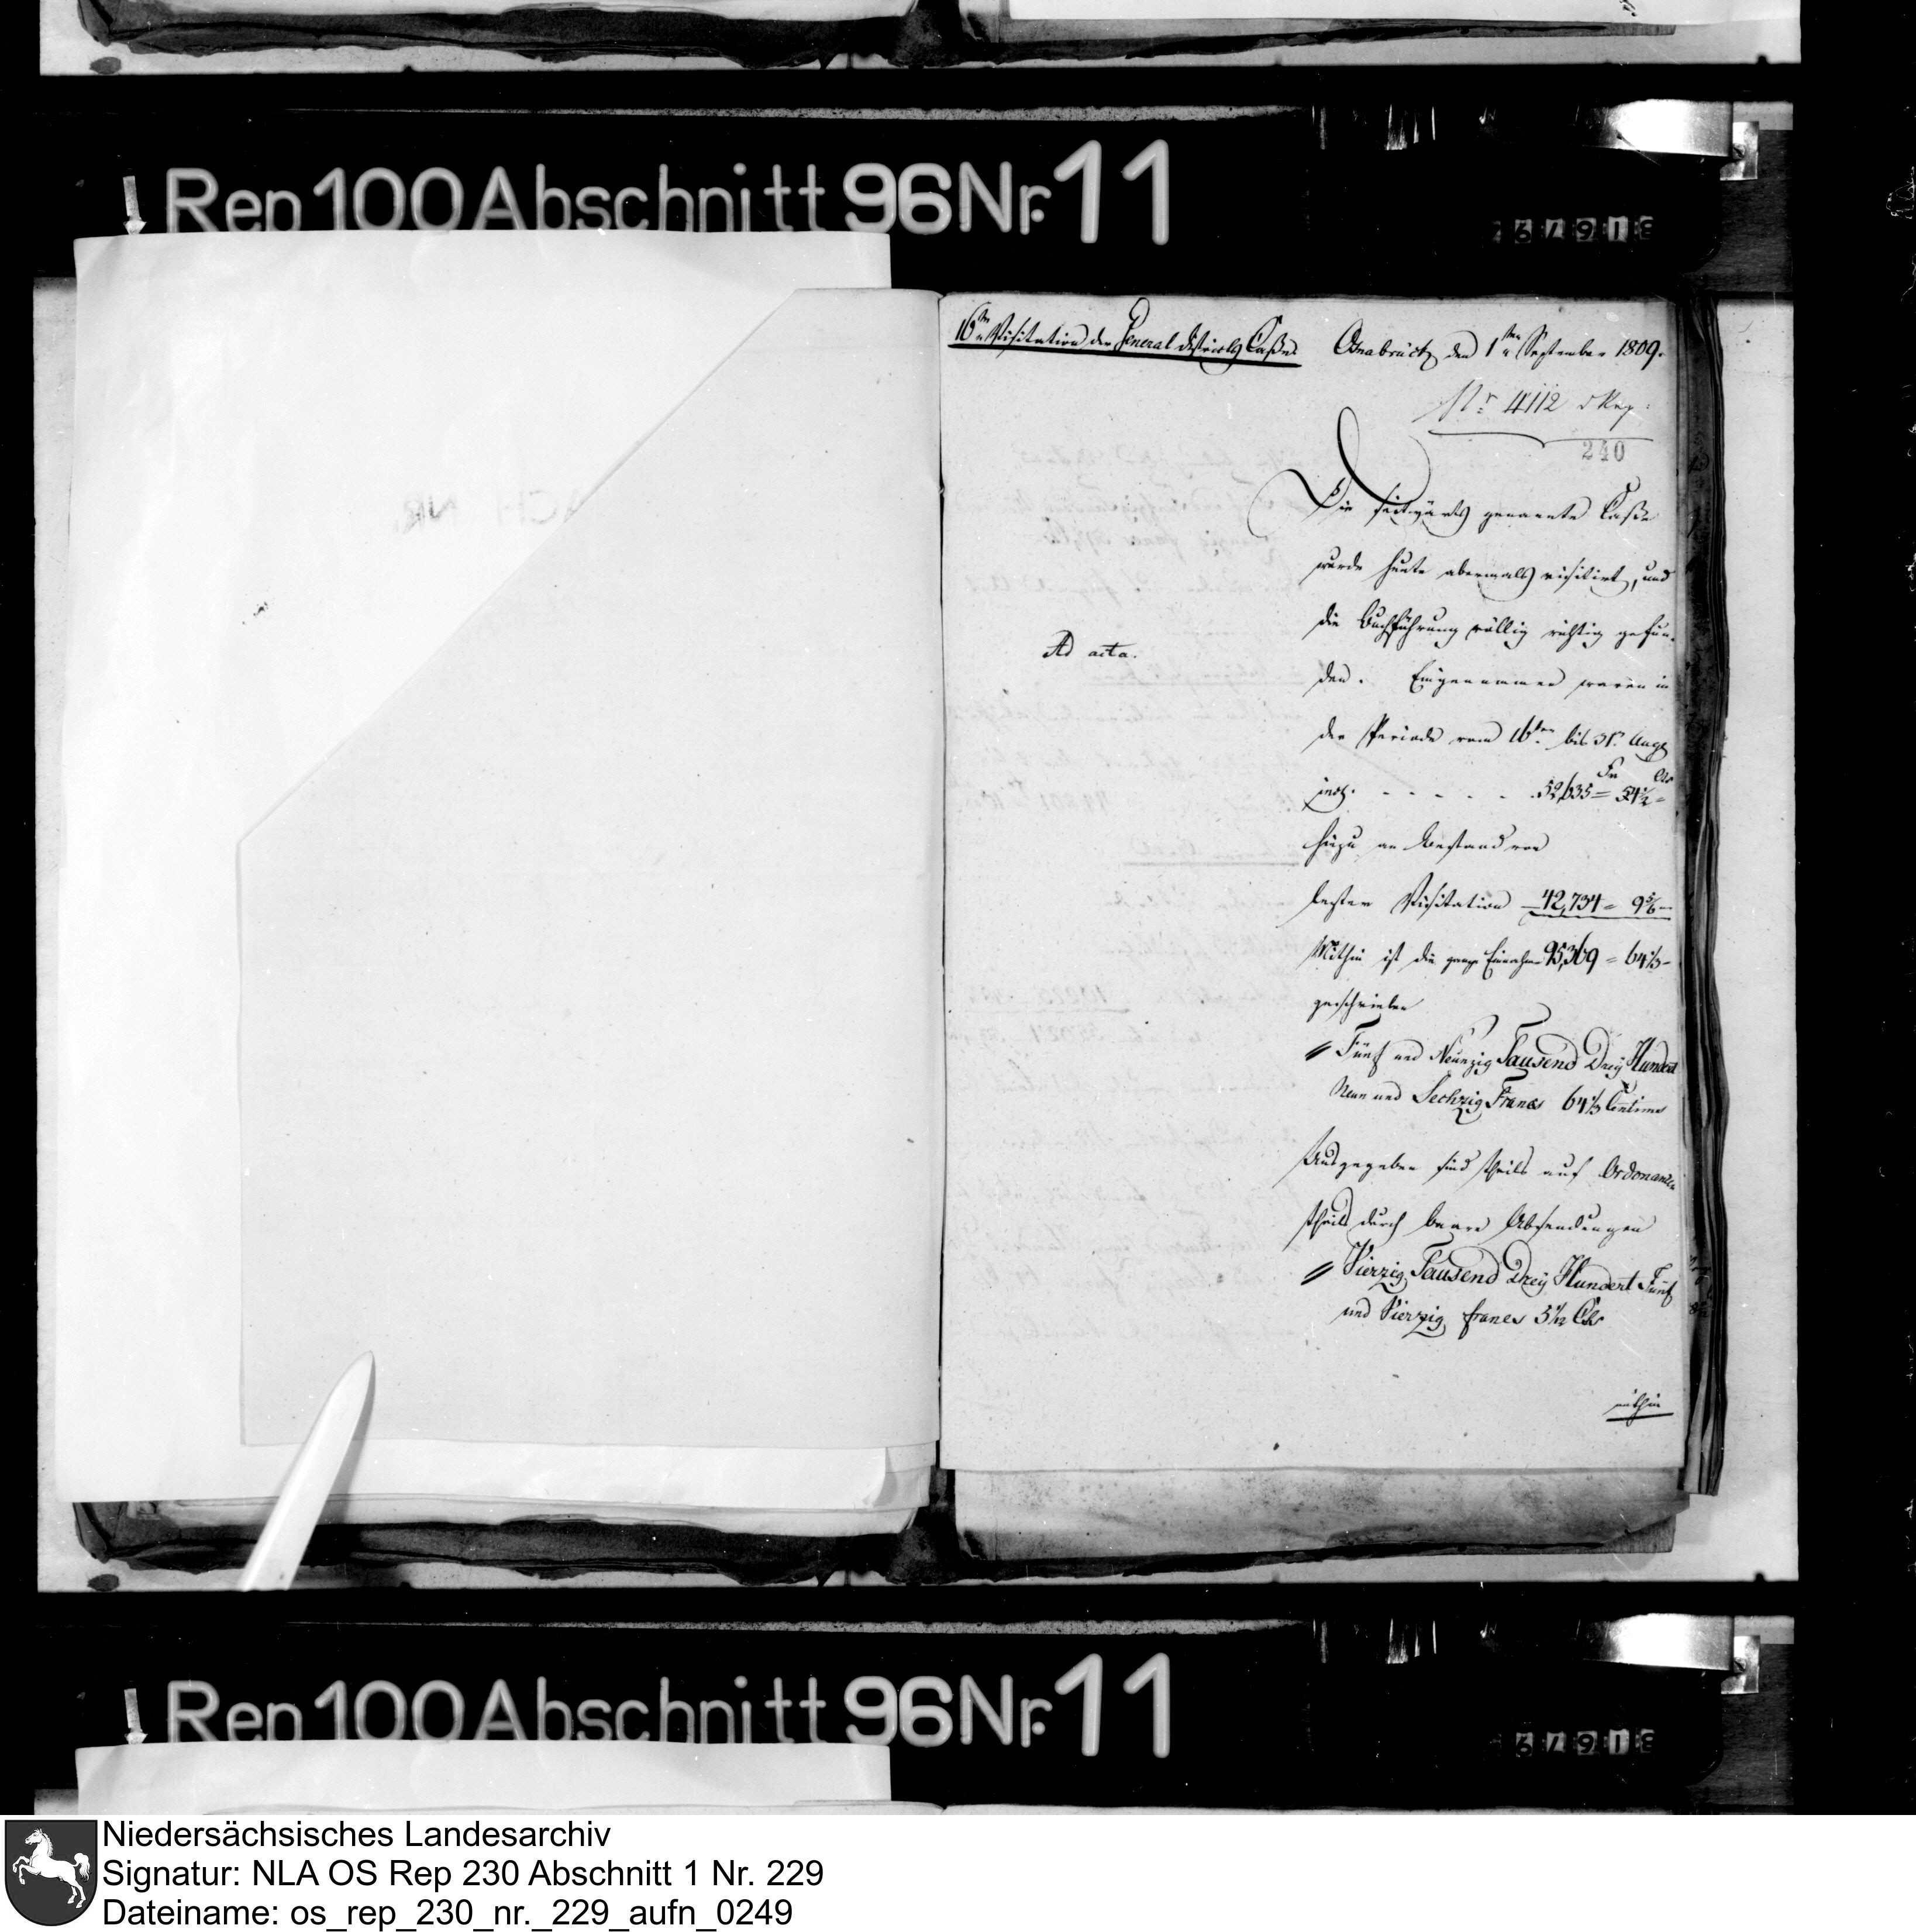 Rep 100 Abschnitt 96 Nr. 11
16te Visitation der General districts Caße.
Osnabrück den 1ten September 1809.
Nr 4112
240
Die seitwärts genannte Caße
wurde heute abermals visitirt, und
die Buchführung völlig richtig gefun-
den. Eingenommen waren in
der Periode vom 16ten bis 31n Aug
incl. - - - - - 52,635 = 54½ =
Fr Cts
hiezu an Bestand von
letzter Visitation 42,734 = 9⅚
Mithin ist die ganze Einnahme 95,369 = 64⅓ -
geschrieben
Fünf und Neunzig Tausend Drey Hundert
Neun und Sechzig Francs 64⅓ Centimes
Ausgegeben sind theils auf Ordonanzen
theils durch baare Absendungen
Vierzig Tausend Drey Hundert Fünf
und Vierzig francs Cts
mithin
Ad acta.
Rep 100 Abschnitt 96 Nr. 11
Niedersächsisches Landesarchiv
Signatur: NLA OS Rep 230 Abschnitt 1 Nr. 229
Dateiname: os_rep_230_nr._229_aufn_0249